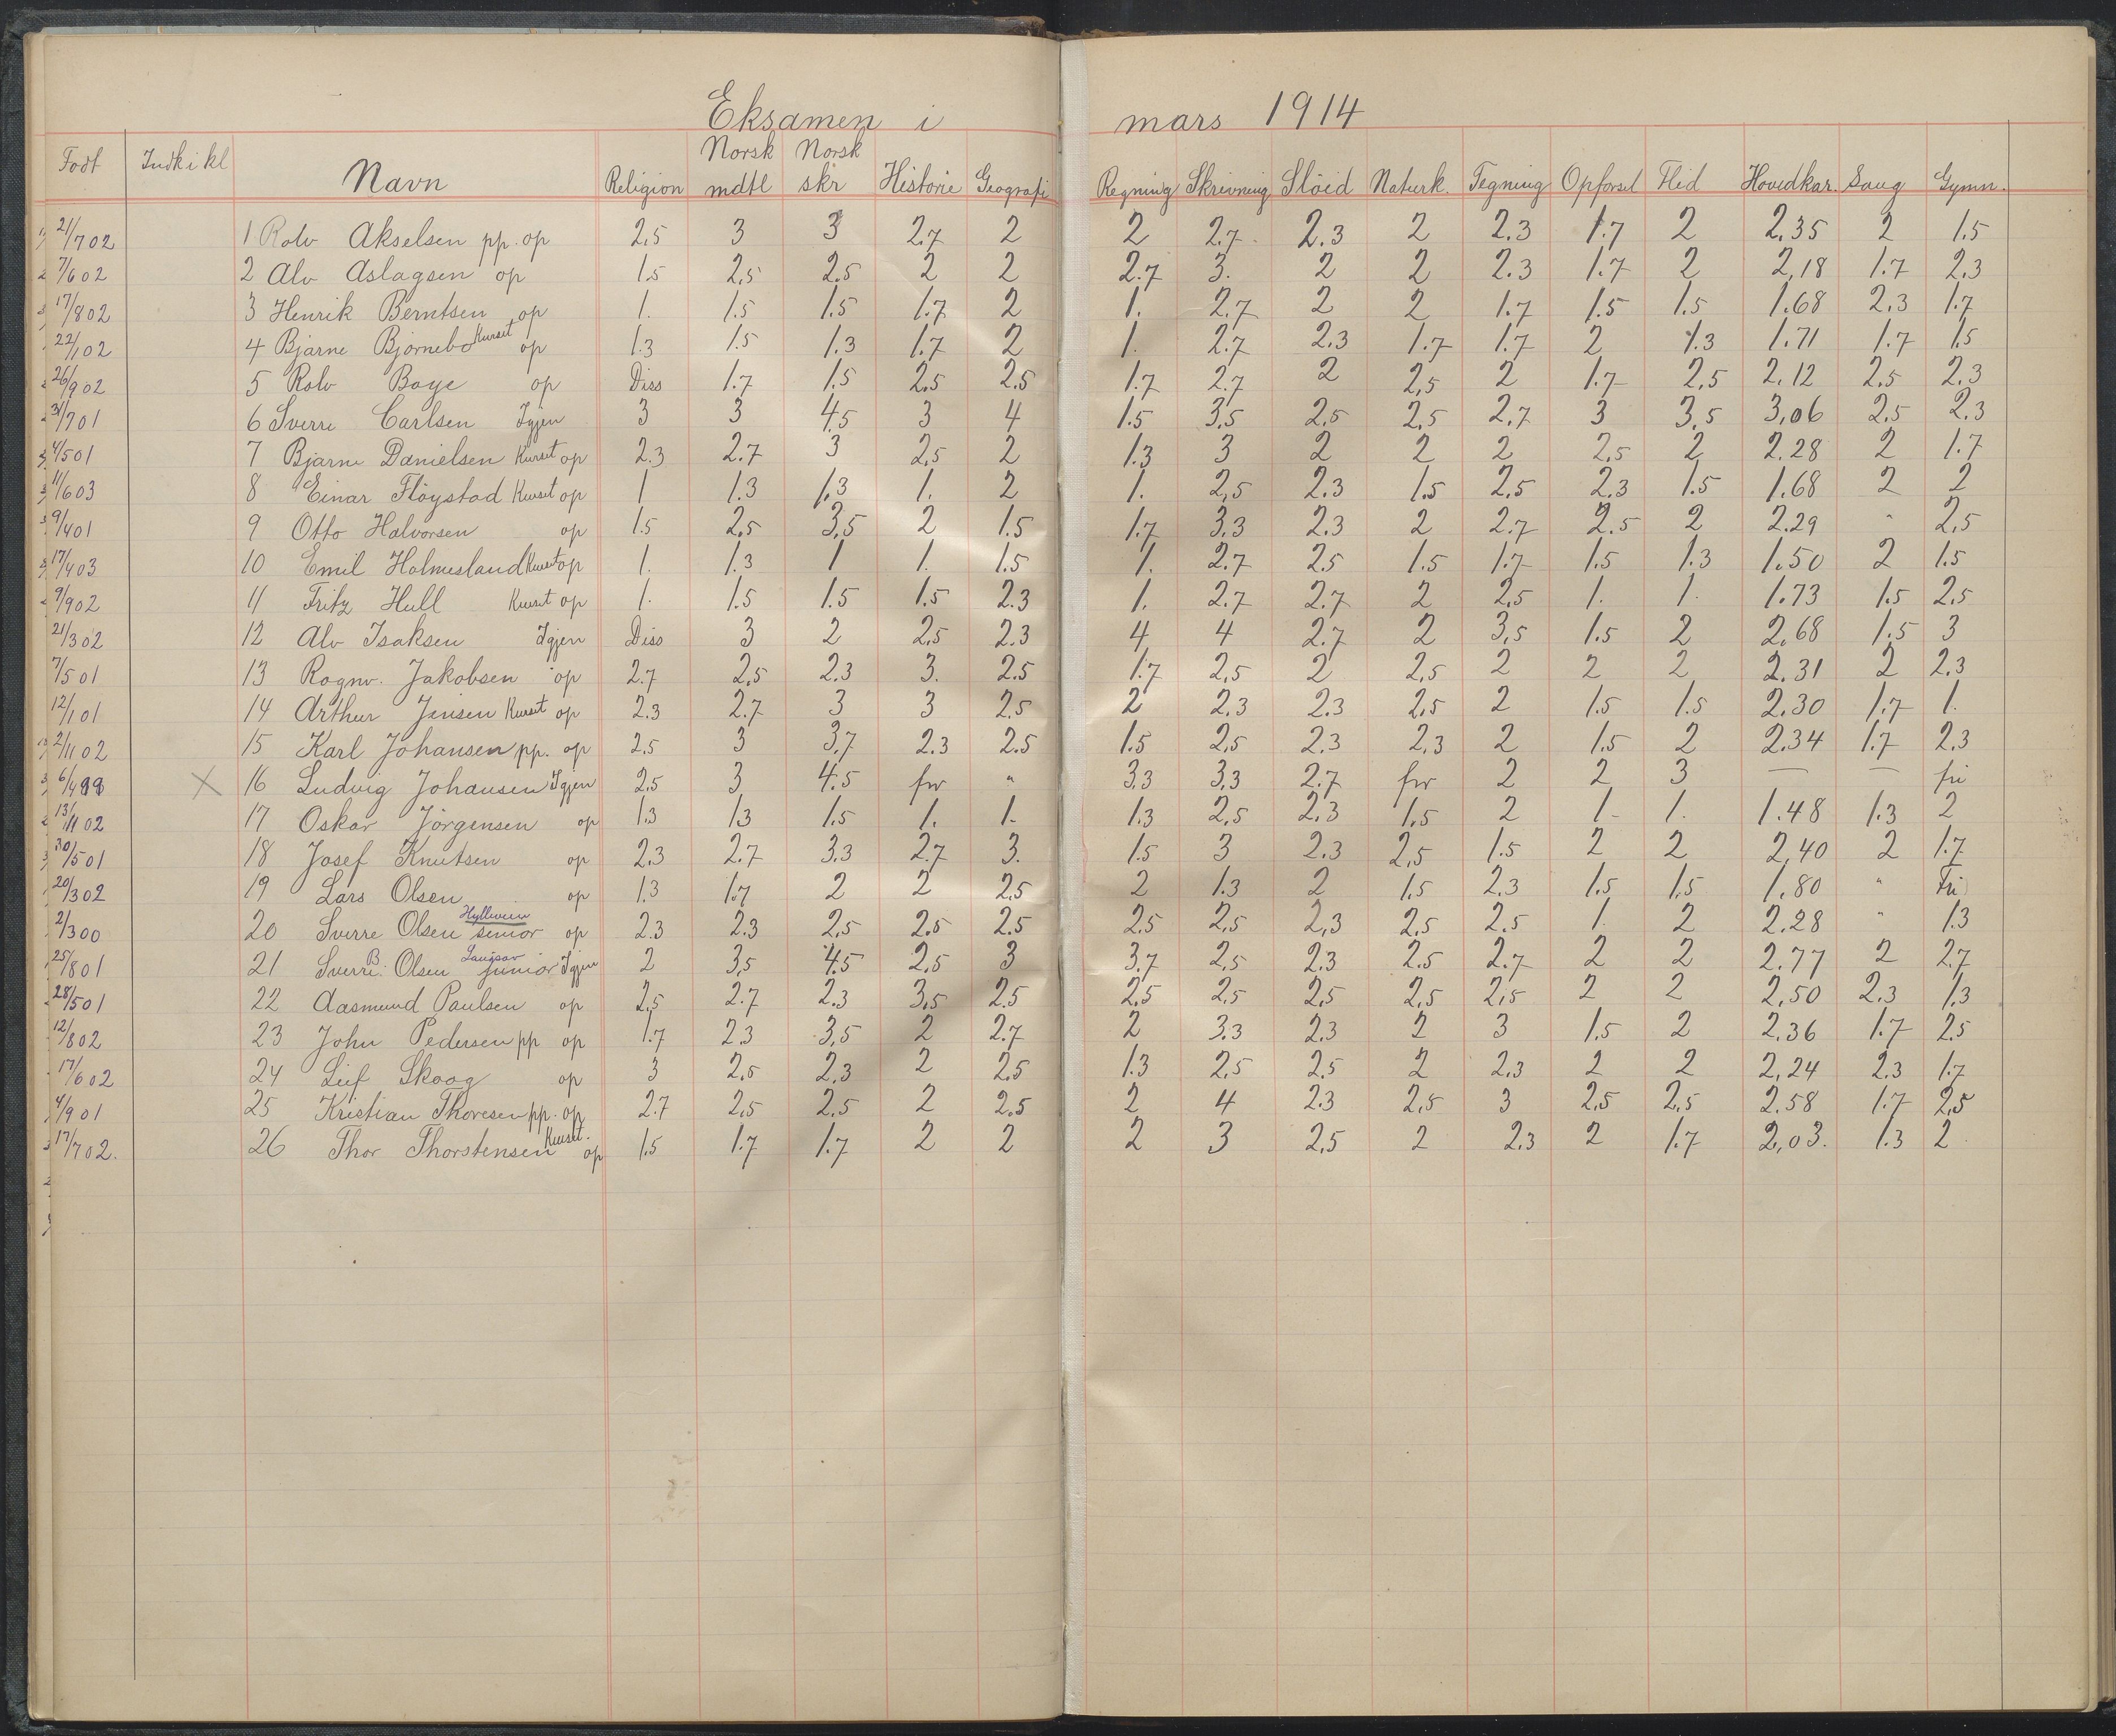 Eksamen i mars 1914
Født Indk i kl Navn Religion Norsk mdtl Norsk skr Historie Geografi Regning Skrivning Slöid Naturk. Tegning Opførsel Flid Hovedkar. Sang Gymn.
21/7 02 1 Rolv Akselsen pp. op 2,5 3 3 2.7 2 2 2.7 2.3 2 2.3 1.7 2 2.35 2 1.5
7/6 02 2 Alv Aslagsen op 1.5 2,5 2.5 2 2 2.7 3. 2 2 2.3 1.7 2 2,18 1.7 2.3
17/8 02 3 Henrik Berntsen op 1. 1.5 1.5 1.7 2 1. 2.7 2 2 1.7 1.5 1.5 1.68 2.3 1.7
22/1 02 4 Bjarne Bjørnebo Kurset op 1.3 1.5 1.3 1.7 2 1. 2.7 2.3 1.7 1.7 2 1.3 1.71 1.7 1.5
26/9 02 5 Rolv Boye op Diss 1.7 1.5 2,5 2.5 1.7 2.7 2 2,5 2 1.7 2,5 2.12 2.5 2.3
31/7 01 6 Sverre Carlsen Igjen 3 3 4.5 3 4 1.5 3,5 2,5 2,5 2.7 3 3,5 3,06 2.5 2.3
4/5 01 7 Bjarne Danielsen Kurset op 2.3 2.7 3 2,5 2 1.3 3 2 2 2 2,5 2 2.28 2 1.7
11/6 03 8 Einar Fløystad Kurset op 1 1.3 1.3 1. 2 1. 2,5 2.3 1.5 2,5 2.3 1.5 1.68 2 2
9/4 01 9 Otto Halvorsen op 1.5 2,5 3,5 2 1.5 1.7 3.3 2.3 2 2.7 2.5 2 2.29 " 2,5
17/4 03 10 Emil Holmesland Kurset op 1. 1.3 1 1. 1.5 1. 2.7 2.5 1.5 1.7 1.5 1.3 1.50 2 1.5
9/9 02 11 Fritz Hull Kurset op 1. 1.5 1.5 1.5 2.3 1. 2.7 2.7 2 2,5 1. 1. 1.73 1.5 2,5
21/3 02 12 Alv Isaksen Igjen Diss 3 2 2,5 2.3 4 4 2.7 2 3,5 1.5 2 2,68 1.5 3
7/5 01 13 Ragnv. Jakobsen op 2.7 2,5 2.3 3. 2.5 1.7 2,5 2 2,5 2 2 2 2.31 2 2.3
12/1 01 14 Arthur Jensen Kurset op 2.3 2.7 3 3 2.5 2 2.3 2.3 2,5 2 1.5 1.5 2.30 1.7 1.
2/11 02 15 Karl Johansen pp. op 2,5 3 3,7 2.3 2.5 1.5 2,5 2.3 2,3 2 1.5 2 2.34 1.7 2.3
6/4 99 X 16 Ludvig Johansen Igjen 2,5 3 4.5 frv " 3.3 3,3 2.7 frv 2 2 3 — — fri
13/11 02 17 Oskar Jørgensen op 1.3 1.3 1.5 1. 1. 1.3 2,5 2,3 1,5 2 1. 1. 1.48 1.3 2
30/5 01 18 Josef Knutsen op 2.3 2.7 3.3 2.7 3. 1.5 3 2.3 2,5 1.5 2 2 2,40 2 1.7
20/3 02 19 Lars Olsen op 1.3 1.7 2 2 2.5 2 1.3 2 1.5 2.3 1.5 1.5 1.80 " Fri
2/3 00 20 Sverre Olsen senior Hylleveien op 2.3 2.3 2,5 2.5 2.5 2.5 2,5 2,3 2,5 2.5 1. 2 2.28 " 1.3
25/8 01 21 Sverre B. Olsen junior Langsav Igjen 2 3,5 4.5 2,5 3 3.7 2,5 2.3 2.5 2.7 2 2 2.77 2 2.7
28/5 01 22 Aasmund Paulsen op 2,5 2.7 2.3 3,5 2.5 2,5 2,5 2,5 2,5 2,5 2 2 2,50 2.3 1.3
12/8 02 23 John Pedersen pp op 1.7 2.3 3,5 2 2.7 2 3.3 2.3 2 3 1.5 2 2.36 1.7 2.5
17/6 02 24 Leif Skoog op 3 2,5 2.3 2 2,5 1.3 2,5 2.5 2 2.3 2 2 2,24 2.3 1.7
4/9 01 25 Kristian Thoresen pp. op 2.7 2,5 2,5 2 2.5 2 4 2.3 2,5 3 2,5 2,5 2.58 1.7 2,5
17/7 02. 26 Thor Thorstensen Kurset. op 1.5 1.7 1.7 2 2 2 3 2,5 2 2.3 2 1.7 2,03. 1.3 2